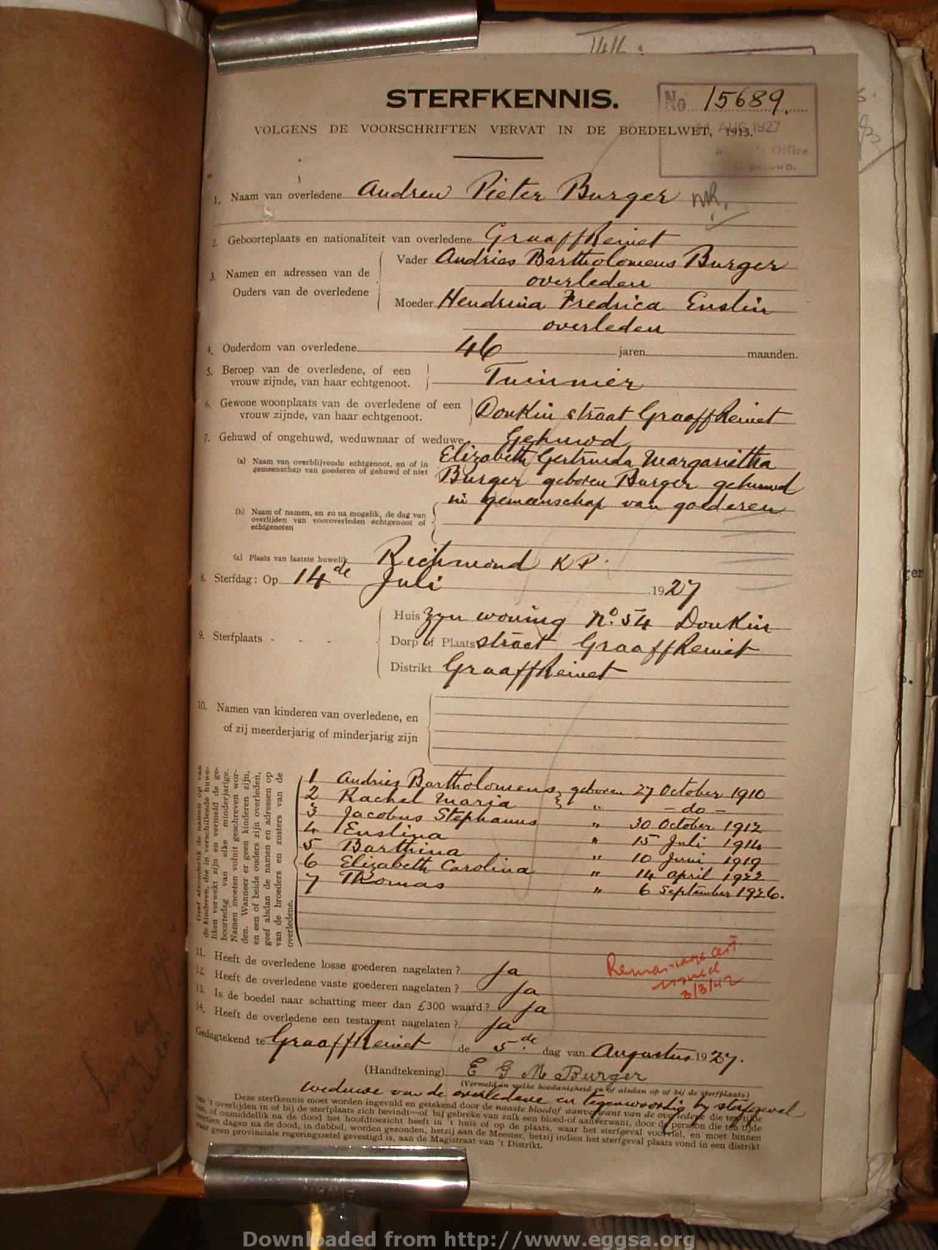 STERFKENNIS.
No 15689.
AUG 1927
Office
VOLGENS DE VOORSCHRIFTEN VERVAT IN DE BOEDELWET, 1913.
1. Naam van overledene Andrew Pieter Burger
2. Geboorteplaats en nationaliteit van overledene Graaff Reinet
3. Namen en adressen van de Ouders van de overledene
Vader Andries Bartholomeus Burger
overleden
Moeder Hendrina Fredrica Enslin
overleden
4. Ouderdom van overledene 46 jaren maanden.
5. Beroep van de overledene, of een vrouw zijnde, van haar echtgenoot. Tuinnier
6. Gewone woonplaats van de overledene of een vrouw zijnde, van haar echtgenoot. Donkin straat Graaff Reinet
7. Gehuwd of ongehuwd, weduwnaar of weduwe Gehuwd
(a) Naam van overblijvende echtgenoot, en of in gemeenschap van goederen of gehuwd of niet
Elizabeth Gertruida Margarietha
Burger geboren Burger gehuwd
in gemeenschap van goederen
(b) Naam of namen, en zo na mogelik, de dag van overlijden van vooroverleden echtgenoot of echtgenoten
(c) Plaats van laatste huwelik Richmond K P.
8. Sterfdag: Op 14de Juli 1927
9. Sterfplaats
Huis Zyn woning No. 54 Donkin
Dorp of Plaats straat Graaff Reinet
Distrikt Graaff Reinet
10. Namen van kinderen van overledene, en
of zij meerderjarig of minderjarig zijn
Geef afzonderlik de namen op van
de kinderen, die in verschillende huwe-
liken verwekt zijn en vermeld de ge-
boortedag van elke minderjarige.
Namen moeten voluit geschreven wor-
den. Wanneer er geen kinderen zijn,
en een of beide ouders zijn overleden,
geef alsdan de namen en adressen op
van de broeders en zusters van de
overledene.
1 Andries Bartholomeus geboren 27 October 1910
2 Rachel Maria " - do -
3 Jacobus Stephanus " 30 October 1912
4 Enslina " 15 Juli 1914
5 Barthina " 10 Juni 1919
6 Elizabeth Carolina " 14 April 1922
7 Thomas " 6 September 1926.
11. Heeft de overledene losse goederen nagelaten? Ja
12. Heeft de overledene vaste goederen nagelaten? Ja
13. Is de boedel naar schatting meer dan £300 waard? Ja
14. Heeft de overledene een testament nagelaten? Ja
Remarriage cert
issued
3/3/42
Gedagtekend te Graaff Reinet de 5de dag van Augustus 1927.
(Handtekening) E G M Burger
(Vermeld in welke hoedanigheid en of alsdan op of bij de sterfplaats)
weduwe van de overledene en tegenwoordig by sterfgeval
Deze sterfkennis moet worden ingevuld en getekend door de naaste bloedof aanverwant van de overledene die ten tijde
van 't overlijden in of bij de sterfplaats zich bevindt—of bij gebreke van zulk een bloed-of aanverwant, door de persoon die ten tijde
van, of onmiddellik na de dood het hoofdtoezicht heeft in 't huis of op de plaats, waar het sterfgeval voorviel, en moet binnen
dagen na de dood, in dubbel, worden gezonden, hetzij aan de Meester, hetzij indien het sterfgeval plaats vond in een distrikt
waar geen provinciale regeringszetel gevestigd is, aan de Magistraat van 't Distrikt.
Downloaded from http://www.eggsa.org